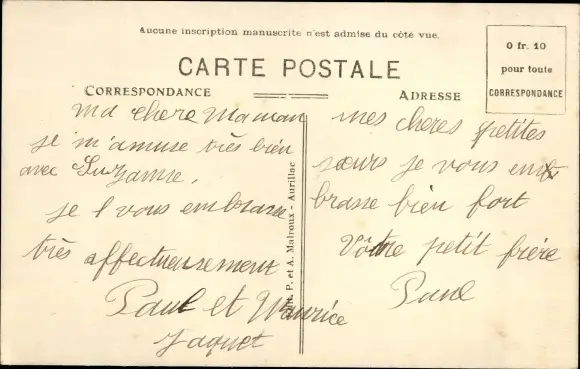 Aucune inscription manuscrite n'est admise du côté vue.
CARTE POSTALE
CORRESPONDANCE
ADRESSE
0 fr. 10
pour toute
CORRESPONDANCE
ma chere maman
je m'amuse très bien
avec Suzanne,
je vous embrasse
très affectueusement
Paul et Maurice
Jaquet
mes cheres petites
sœurs je vous em
brasse bien fort
Votre petit frère
Paul
Edit. P. et A. Malroux - Aurillac